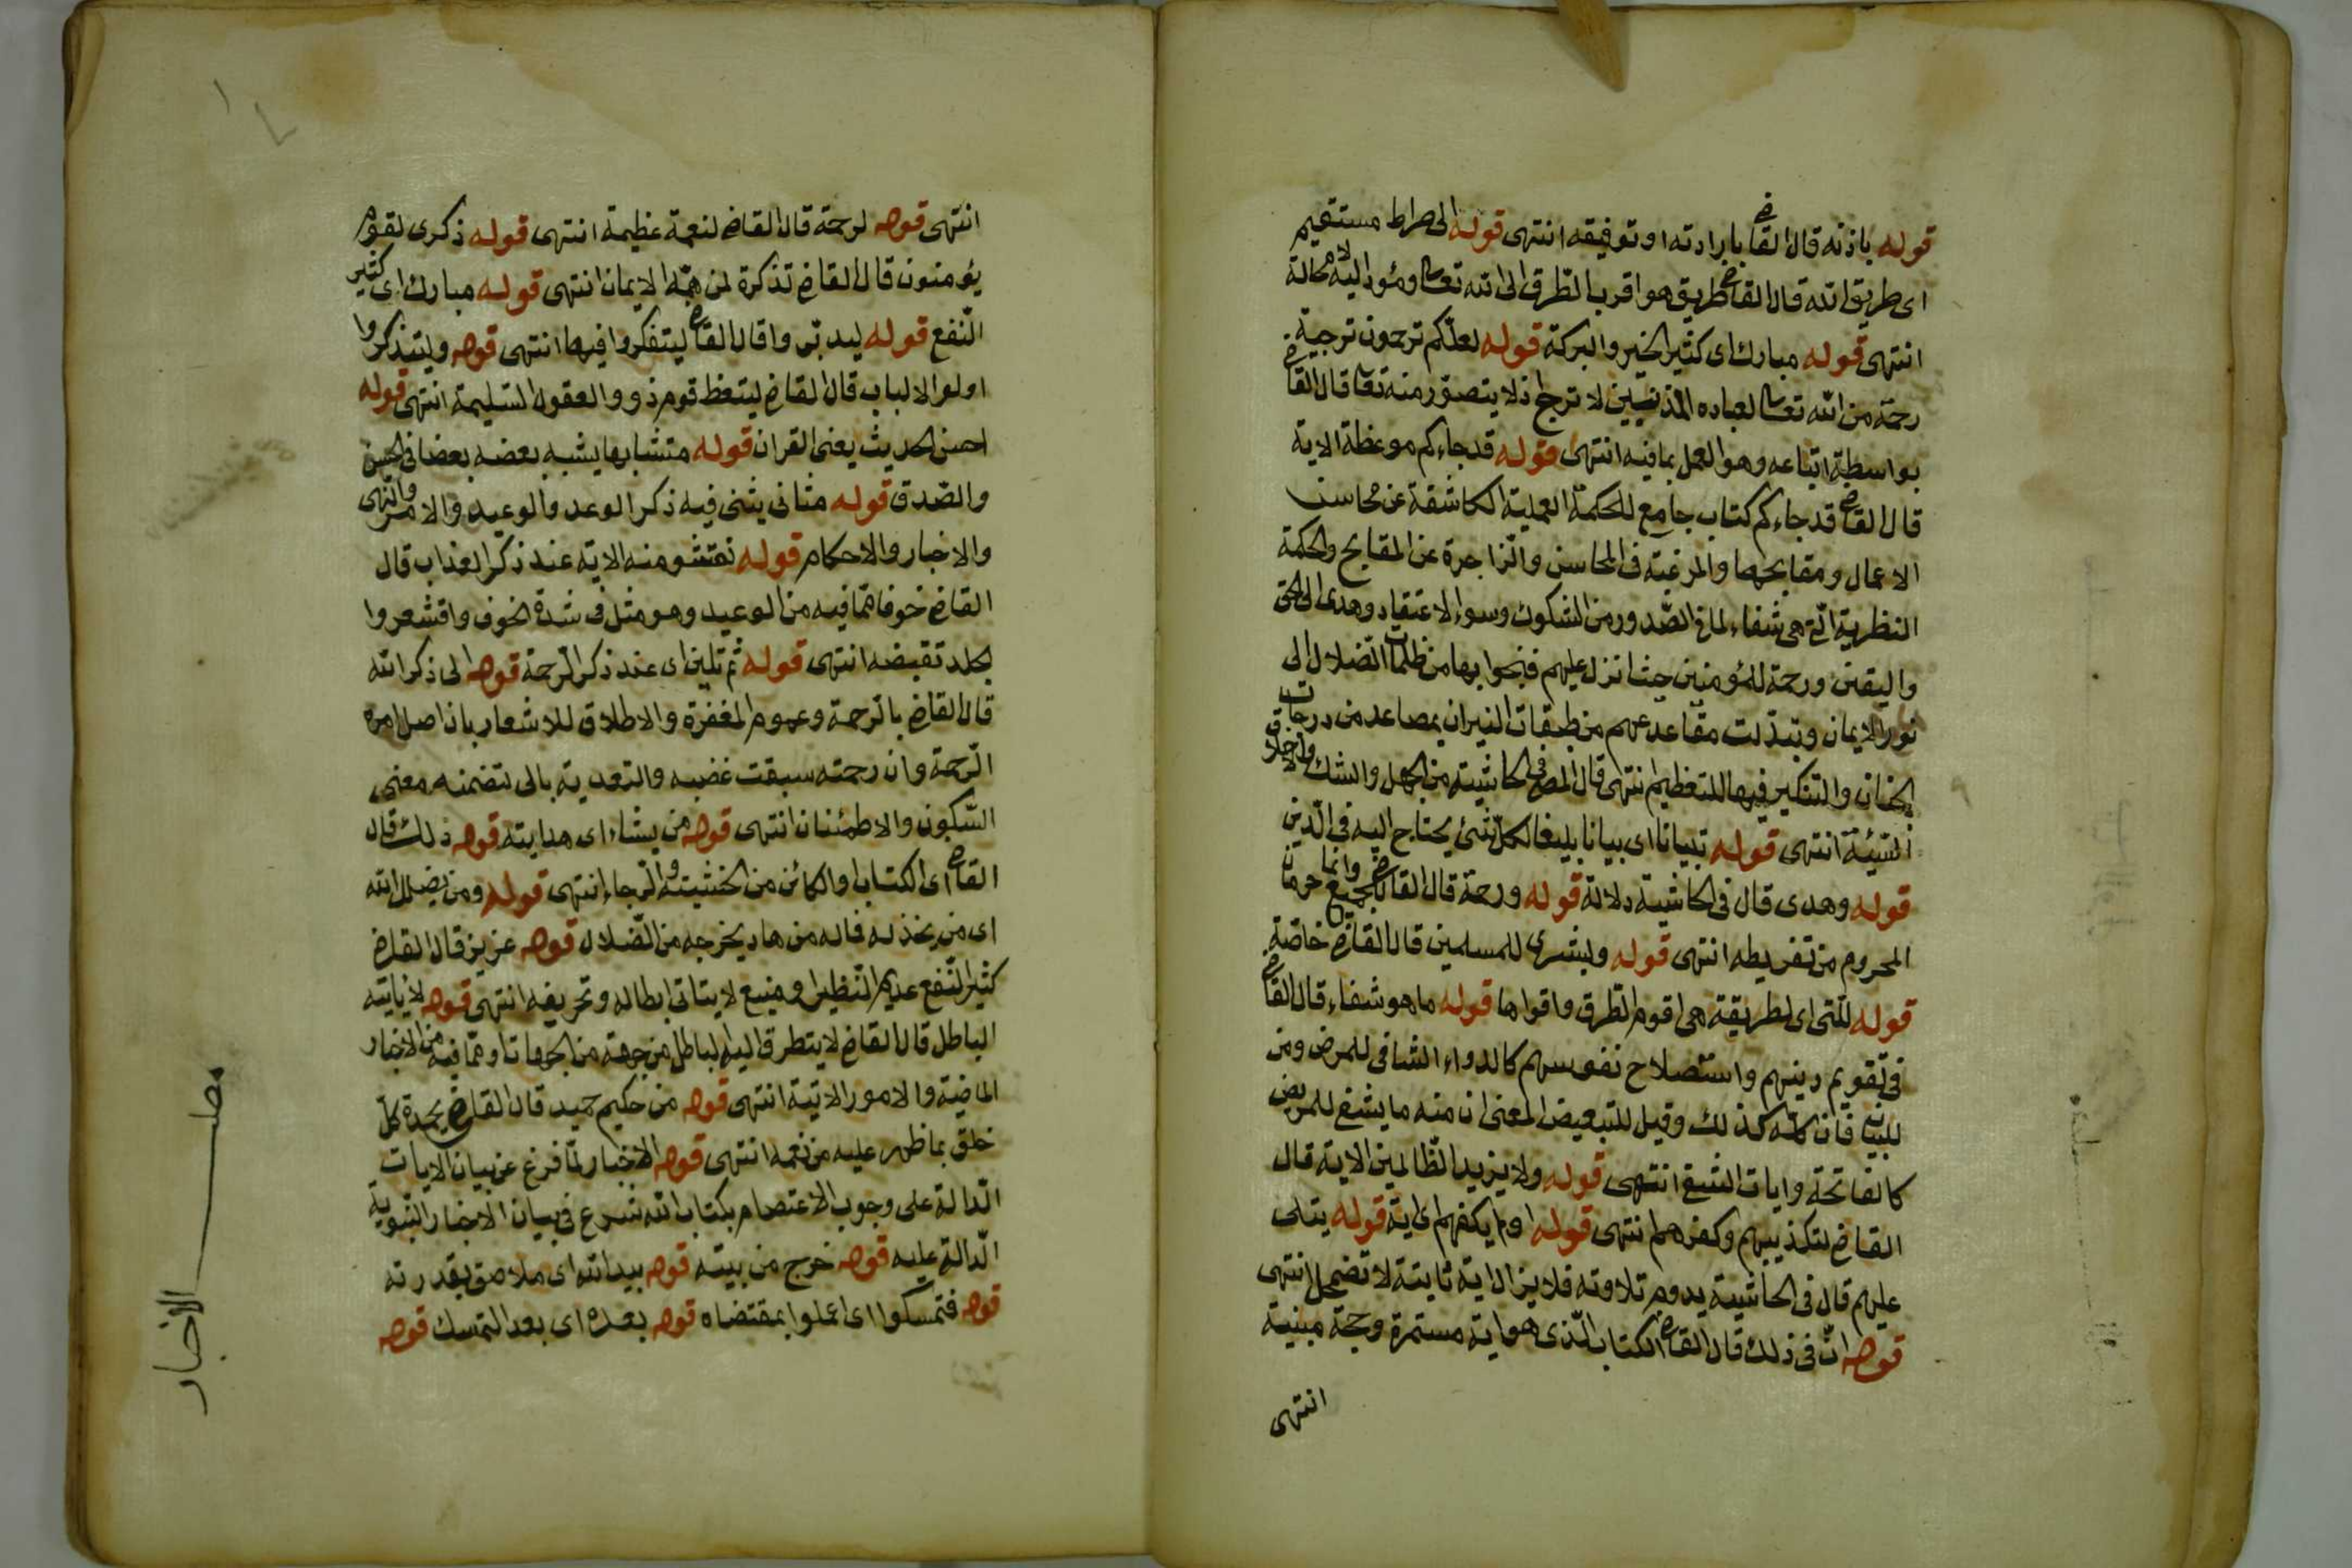 قوله باذنه قال القاض بارادته او توفيقه انتهى قوله الى صراط مستقيم
اى طريق الله قال القاض طريق هو اقرب الطرق الى الله تعا ومؤد اليه لا محالة
انتهى قوله مبارك اى كثير الخير والبركة قوله لعلّكم ترحمون ترجية
رحمة من الله تعا لعباده المذنبين لا ترج اذ لا يتصور منه تعا قال القاض
بواسطة اتباعه وهو العمل بما فيه انتهى قوله قد جاءكم موعظة الاية
قال القاض قد جاءكم كتاب جامع للحكمة العملية الكاشفة عن محاسن
الاعمال ومقابحها والمرغبة فى المحاسن والزاجرة عن المقابح والحكمة
النظرية التى هى شفاء لما فى الصدور من الشكوك وسوء الاعتقاد وهدى الى الحق
واليقين ورحمة للمؤمنين حيث انزل عليهم فنجوا بها من ظلمات الضلال الى
نور الايمان وتبدلت مقاعدهم من طبقات النيران بمصاعد من درجات
الجنان والتنكير فيها للتعظيم انتهى قال المص فى الحاشية من الجهل والشك والاخلاق
السّيئة انتهى قوله تبيانا اى بيانا بليغا لكل شئ يحتاج اليه فى الدين
قوله وهدى قال فى الحاشية دلالة قوله ورحمة قال القاض للجميع وانما حرمان
المحروم من تفريطه انتهى قوله وبشرى للمسلمين قال القاض خاصة
قوله للتى اى لطريقة هى اقوم الطرق واقواها قوله ما هو شفاء قال القاض
فى تقويم دينهم واستصلاح نفوسهم كالدواء الشافى للمرض ومن
للبيان فان كله كذلك وقيل للتبعيض المعنى ان منه ما يشفى للمريض
كالفاتحة وايات الشفا انتهى قوله ولا يزيد الظالمين الاية قال
القاض لتكذيبهم وكفرهم انتهى قوله اولم يكفهم اى اية قوله يتلى
عليهم قال فى الحاشية يدوم تلاوته فلا يزال اية ثابتة لا تضمحل انتهى
قوله انّ فى ذلك قال القاض الكتاب الّذى هو اية مستمرة وحجة مبنية
انتهى
انتهى قوله لرحمة قال القاض لنعمة عظيمة انتهى قوله ذكرى لقوم
يؤمنون قال القاض تذكرة لمن همّه الايمان انتهى قوله مبارك اى كثير
النّفع قوله ليدبّروا قال القاض ليتفكروا فيها انتهى قوله وليتذكروا
اولوا الالباب قال القاض ليتعظ قوم ذوو العقول السّليمة انتهى قوله
احسن الحديث يعنى القران قوله متشابها يشبه بعضه بعضا فى الحسن
والصّدق قوله مثانى يثنى فيه ذكر الوعد والوعيد والامر والنهى
والاخبار والاحكام قوله تقشعر منه الاية عند ذكر العذاب قال
القاض خوفا ممّا فيه من الوعيد وهو مثل فى شدة الخوف واقشعروا
لجلد تقبضه انتهى قوله ثم تلين اى عند ذكر الرحمة قوله الى ذكر الله
قال القاض بالرحمة وعموم المغفرة والاطلاق للاشعار بان اصل امره
الرّحمة وان رحمته سبقت غضبه والتعدية بالى لتضمنه معنى
السّكون والاطمئنان انتهى قوله من يشاء اى هدايته قوله ذلك قال
القاض اى الكتاب او الكائن من الخشية والرجاء انتهى قوله ومن يضلل الله
اى من يخذله فما له من هاد يخرجه من الضلال قوله عزيز قال القاض
كثير النّفع عديم النّظير او منيع لا يتاتى ابطاله وتحريفه انتهى قوله لا ياتيه
الباطل قال القاض لا يتطرق اليه الباطل من جهة من الجهات او ممّا فيه من الاخبار
الماضية والامور الاتية انتهى قوله من حكيم حميد قال القاض يحمده كلّ
خلق بما ظهر عليه من نعمه انتهى قوله الاخبار لمّا فرغ عن بيان الايات
الدّالة على وجوب الاعتصام بكتاب الله شرع فى بيان الاخبار النبوية
الدّالة عليه قوله خرج من بيته قوله بيد الله اى ملاصق بقدرته
قوله فتمسكوا اى اعملوا بمقتضاه قوله بعده اى بعد التمسك قوله
مطلـــب الاخبار